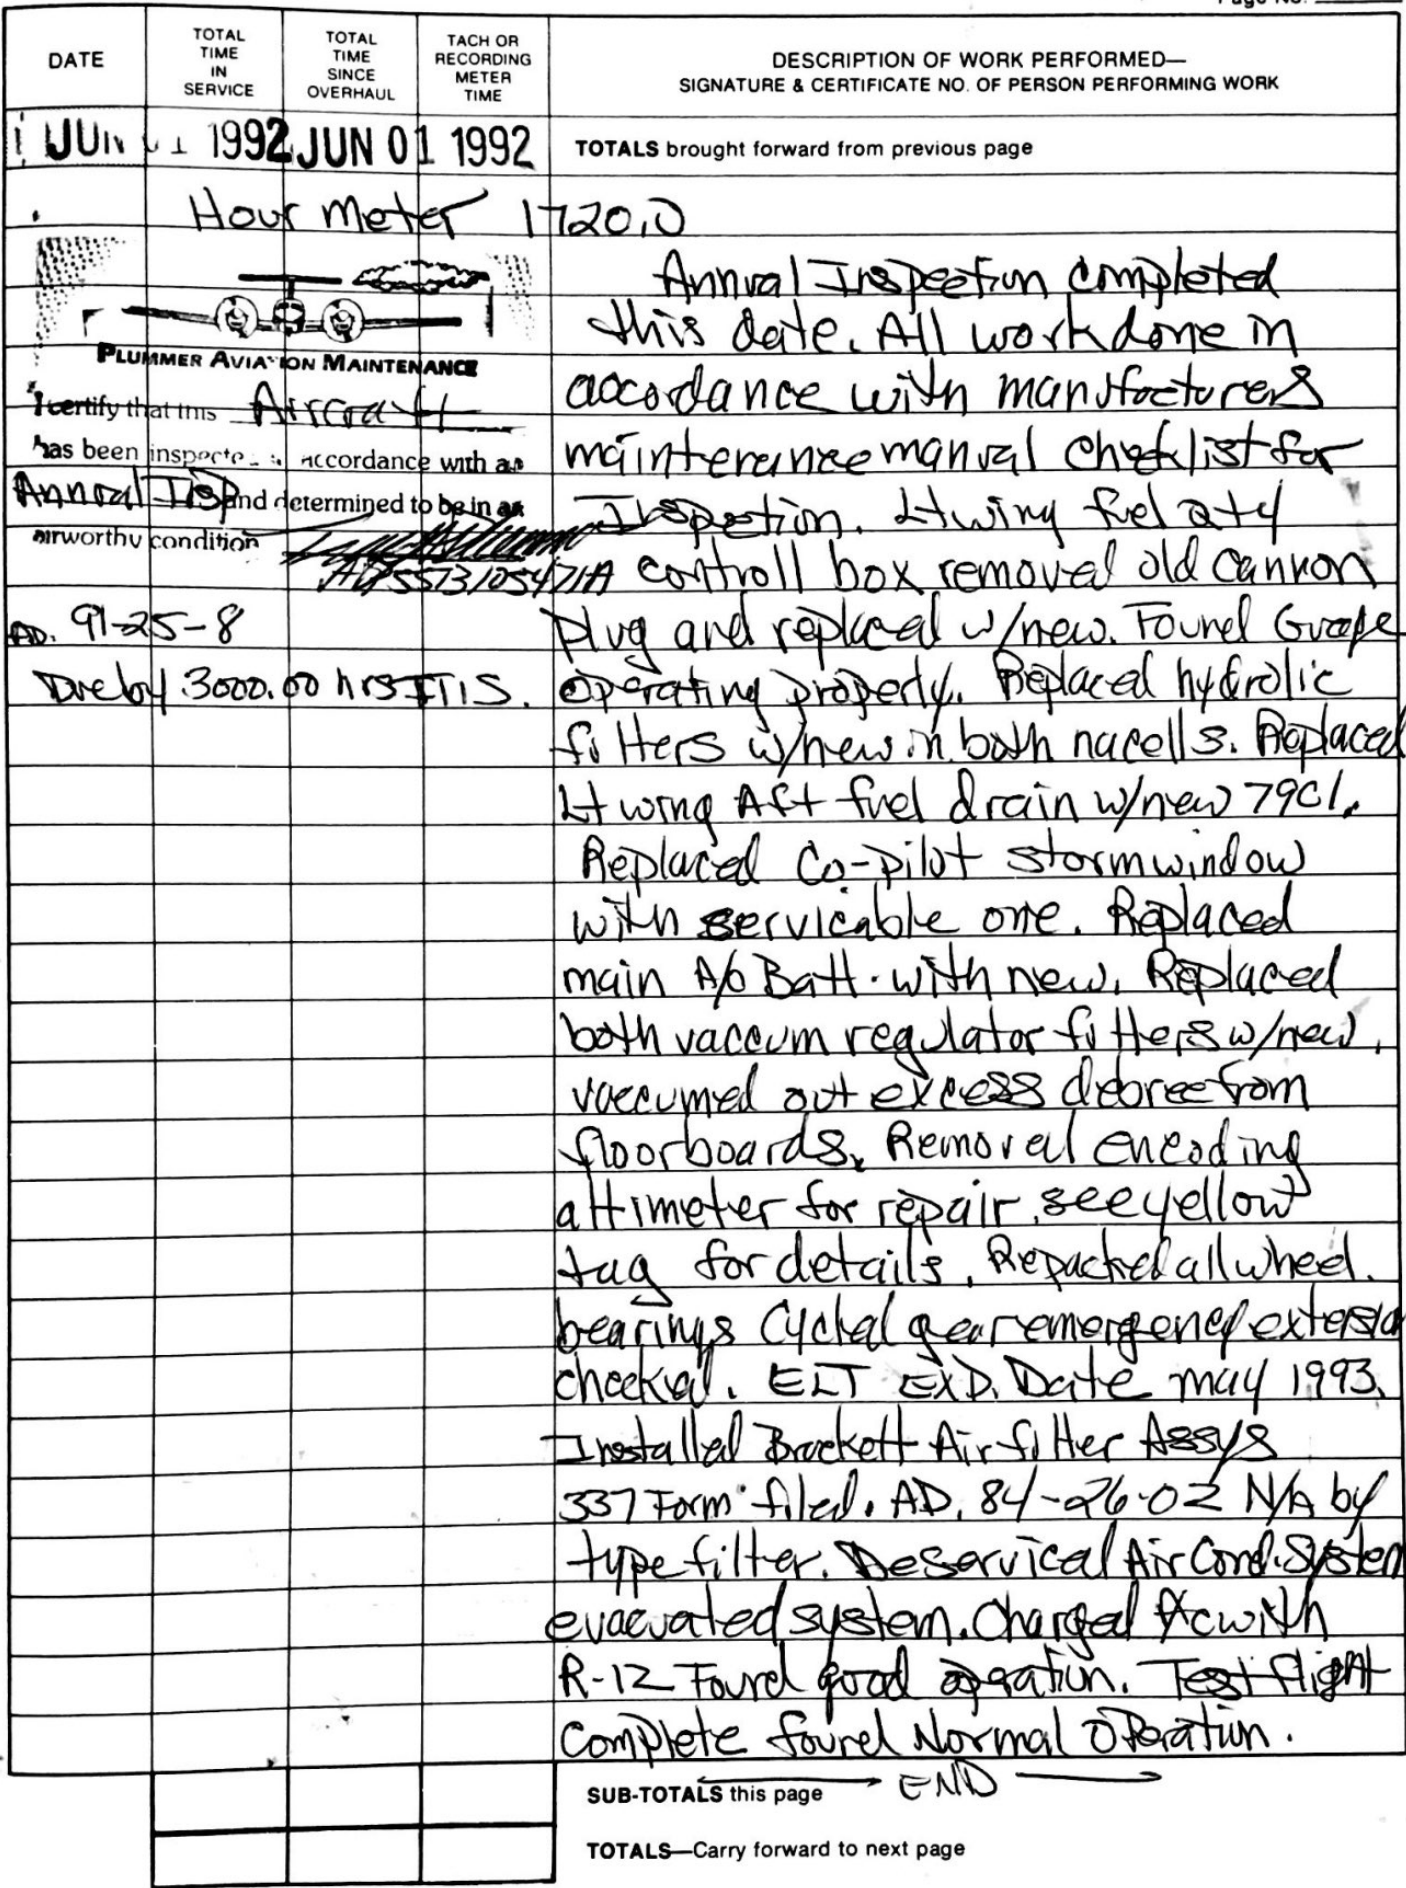 Page No.
DATE
TOTAL
TIME
IN
SERVICE
TOTAL
TIME
SINCE
OVERHAUL
TACH OR
RECORDING
METER
TIME
DESCRIPTION OF WORK PERFORMED—
SIGNATURE & CERTIFICATE NO. OF PERSON PERFORMING WORK
JUN 01 1992 JUN 01 1992
TOTALS brought forward from previous page
Hour Meter 1720.0
PLUMMER AVIATION MAINTENANCE
I certify that this Aircraft
has been inspected in accordance with an
Annual Insp and determined to be in an
airworthy condition
A&P
AD. 91-25-8
Due by 3000.00 hrs TTIS.
Annual Inspection completed
this date. All work done in
accordance with manufacturers
maintenance manual checklist for
Inspection. Lt wing fuel qty
controll box removed old cannon
plug and replaced w/new. Found Guage
operating properly. Replaced hydrolic
filters w/new in both nacells. Replaced
Lt wing Aft fuel drain w/new 79C1.
Replaced Co-pilot storm window
with servicable one. Replaced
main A/C Batt. with new. Replaced
both vaccum regulator filters w/new.
vaccumed out excess debree from
floorboards. Removed encoding
altimeter for repair. see yellow
tag for details. Repacked all wheel
bearings Cycled gear emergency extension
checked. ELT EXP. Date may 1993.
Installed Brackett Air filter Assys
337 Form filed. AD. 84-26-02 N/A by
type filter. Deserviced Air Cond. System
evacuated system. Charged Ac with
R-12 Found good operation. Test flight
Complete found Normal Operation.
END
SUB-TOTALS this page
TOTALS—Carry forward to next page